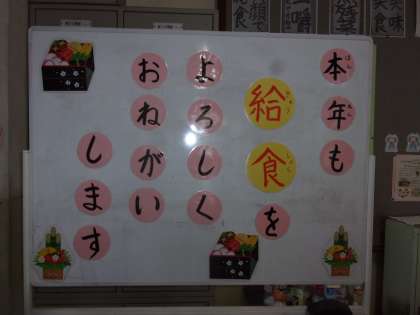 本年も
給食を
よろしく
おねがい
します